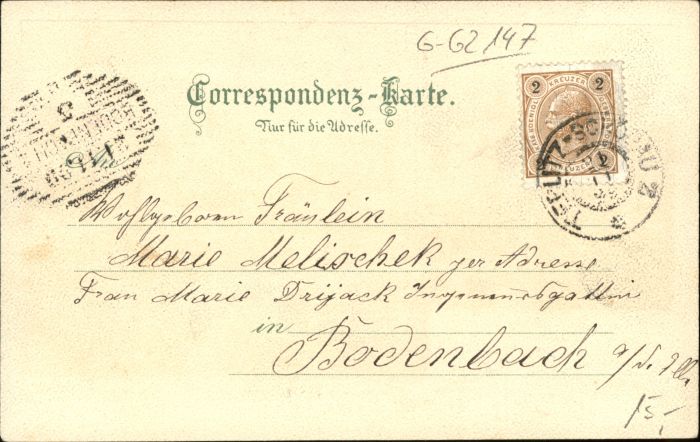 G-62147
Correspondenz-Karte.
Nur für die Adresse.
2 KREUZER 2
TEPLITZ-SC
BODENBACH
Wohlgeboren Fräulein
Marie Melischek per Adresse
Frau Marie Drijack Ingenieursgattin
in
Bodenbach a/d. Elbe
15,-